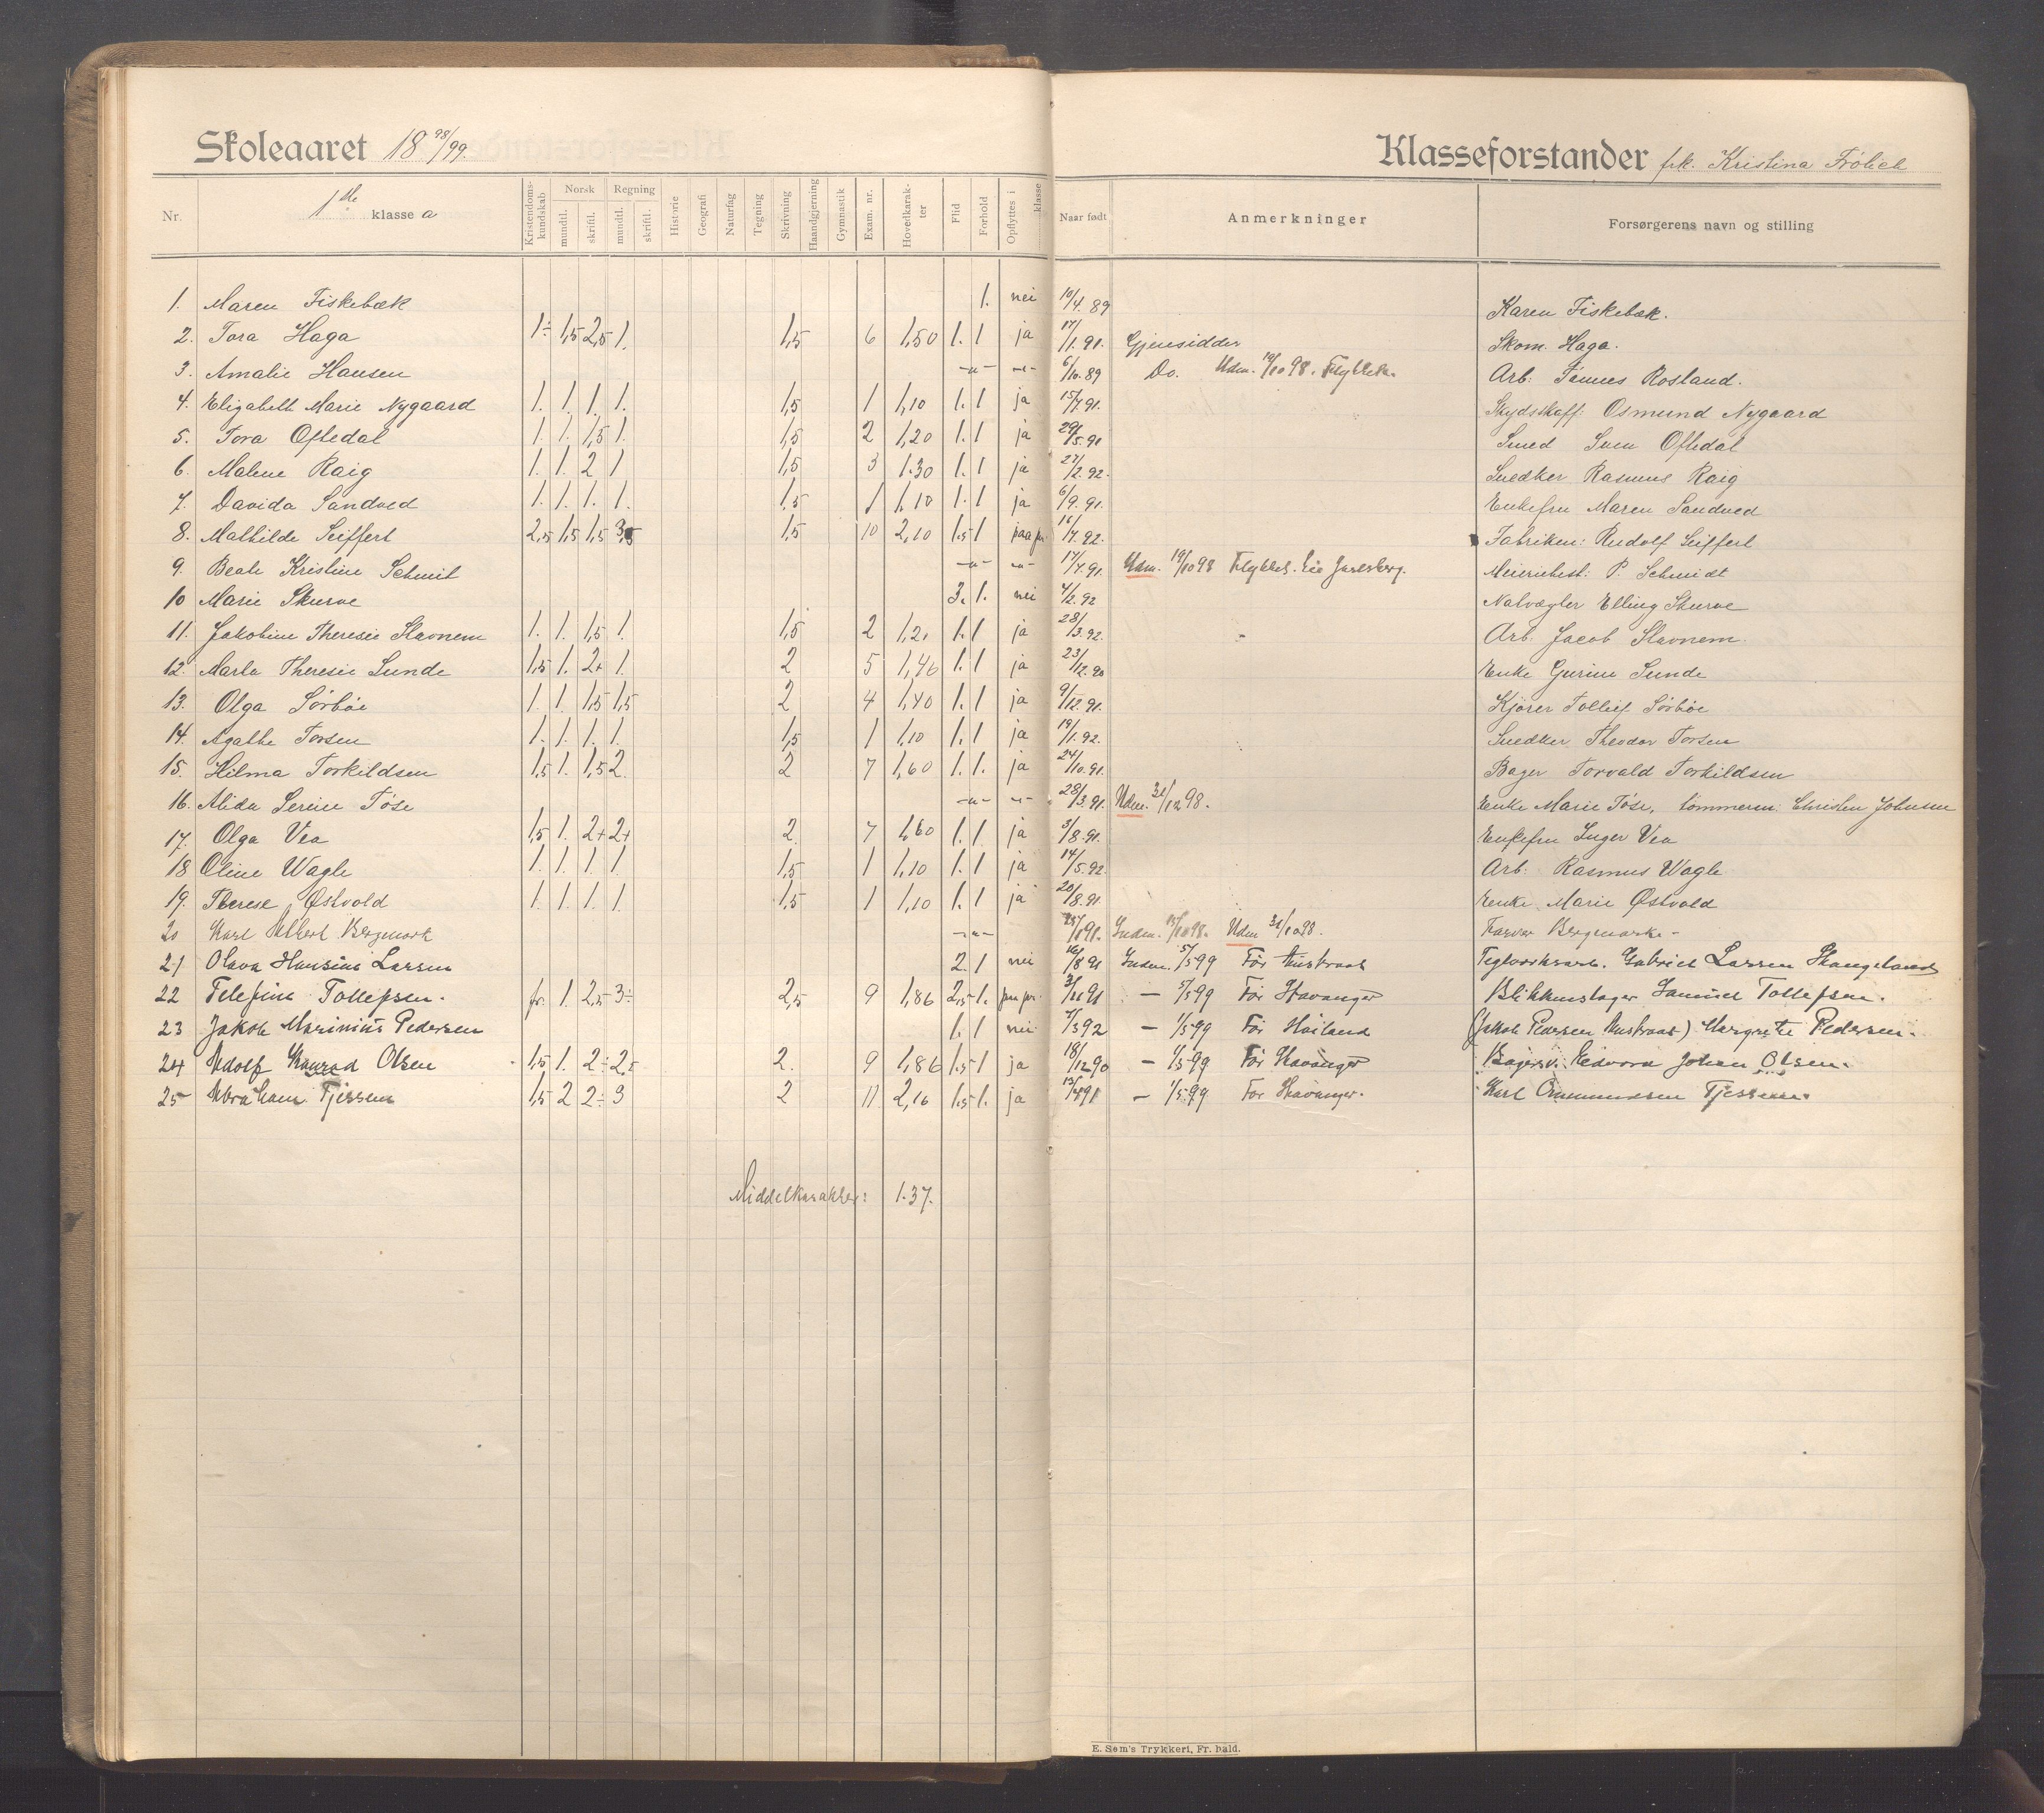 Skoleaaret 18 98/99.
Klasseforstander frk. Kristina Frölich
Nr. 1ste klasse a Kristendomskundskab Norsk mundtl. skriftl. Regning mundtl. skriftl. Historie Geografi Naturfag Tegning Skrivning Haandgjerning Gymnastik Exam. nr. Hovedkarakter Flid Forhold Opflyttes i klasse Naar født Anmerkninger Forsørgerens navn og stilling
1. Maren Fiskebæk 1. nei 10/4.89 Karen Fiskebæk.
2. Tora Haga 1÷ 1,5 2,5 1. 1,5 6 1,50 1. 1 ja 17/1.91. Gjensidder Skom. Haga.
3. Amalie Hansen -"- -"- 6/10.89 Do. Udm. 19/10 98. Flyttet. Arb. Tønnes Rosland.
4. Elisabeth Marie Nygaard 1. 1. 1. 1. 1,5 1 1,10 1. 1 ja 15/7.91. Skydsskaff. Osmund Nygaard
5. Tora Oftedal 1. 1. 1,5 1. 1,5 2 1,20 1. 1 ja 29/5.91 Smed Sven Oftedal
6. Malene Raig 1. 1. 2 1 1,5 3 1.30 1. 1 ja 27/2.92. Snedker Rasmus Raig
7. Davida Sandved 1. 1. 1. 1. 1,5 1 1,10 1. 1 ja 6/9.91. Enkefru Maren Sandved
8. Mathilde Seiffert 2,5 1,5 1,5 3,5 1,5 10 2,10 1.5 1 paa pr. 16/7.92. Fabrikm: Rudolf Seiffert
9. Beate Kristine Schmit -"- -"- 17/7.91. Udm. 19/10 98 Flyttet. Jarlsberg. Meieribest: P. Schmidt
10 Marie Skurve 3. 1. nei 4/2.92 Natvægter Elling Skurve
11. Jakobine Theresie Stavnem 1. 1. 1,5 1. 1,5 2 1,21 1. 1 ja 28/3.92. Arb. Jacob Stavnem.
12. Marta Theresie Sunde 1,5 1. 2+ 1. 2 5 1,46 1. 1 ja 23/12.90 Enke Gurine Sunde
13. Olga Sørbøe 1. 1. 1,5 1,5 2 4 1,40 1. 1 ja 9/12.91. Kjører Tollief Sørbøe
14. Agathe Torsen 1. 1. 1. 1. 1,5 1 1,10 1. 1 ja 19/1.92. Snedker Theodor Torsen
15. Hilma Torkildsen 1,5 1. 1,5 2. 2 7 1,60 1. 1. ja 24/10.91. Bager Torvald Torkildsen
16. Alida Serine Tøse -"- -"- 28/3.91. Udm. 31/12 98. Enke Marie Tøse, tømmerm: Christen Johnsen
17. Olga Vea 1,5 1. 2+ 2+ 2 7 1,60 1. 1 ja 3/8.91. Enkefru Inger Vea
18 Oline Wagle 1. 1. 1. 1. 1,5 1 1,10 1. 1 ja 14/5.92. Arb. Rasmus Wagle
19. Therese Østvold 1. 1. 1. 1. 1,5 1 1,10 1. 1 ja 20/8.91. Enke Marie Østvold
20 Karl Albert Bergmark -"- Indm. 15/10 98. Udm 31/10 98. Farver Bergmark -
21 Olava Hansine Larsen 2. 1 nei 16/8 91 Indm. 5/5 99 Før Austraat Teglværksarb. Gabriel Larsen Skangeland
22 Telefine Tollefsen. fr. 1. 2,5 3÷ 2,5 9 1,86 2,5 1. paa pr. — 5/5 99 Før Stavanger Blikkenslager Samuel Tollefsen.
23 Jakob Marinius Pedersen 1. 1 nei 7/3 92 — 1/5 99 Før Høiland (Jakob Pedersen Austraat) Margrete Pedersen.
24 Adolf Konrad Olsen 1,5 1. 2÷ 2,5 2. 9 1,86 1.5 1 ja 18/12 90 — 1/5 99 Før Stavanger Bagersv. Edvard Johan Olsen.
25 Abraham Tjessem 1,5 2 2÷ 3 2 11 2,16 1.5 1. ja — 1/5 99 For Stavanger. Karl Ommundsen Tjessem.
Middelkarakter: 1.37.
E. Søm's Trykkeri, Fr. hald.